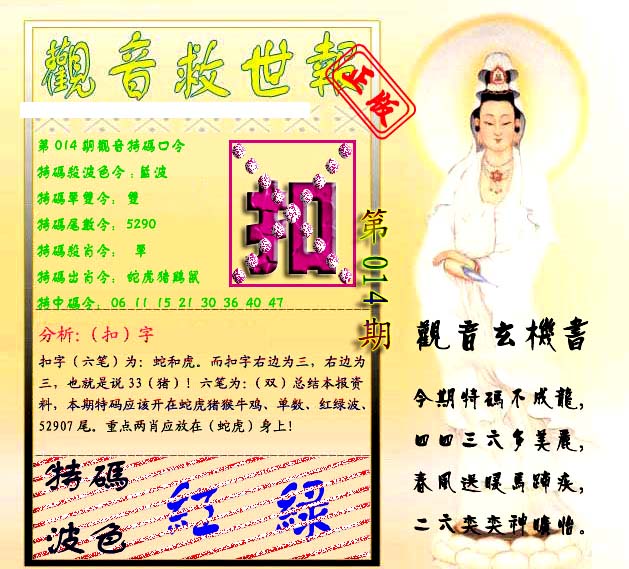 觀音救世報
正版
第014期觀音特碼口令
特碼殺波色令：藍波
特碼單雙令： 雙
特碼尾數令： 5290
特碼殺肖令： 單
特碼出肖令： 蛇虎猪鷄鼠
特中碼令： 06 11 15 21 30 36 40 47
扣
第014期
分析:（扣）字
扣字（六笔）为：蛇和虎。而扣字右边为三，右边为
三，也就是说 33（猪）！六笔为:（双）总结本报资
料，本期特码应该开在蛇虎猪猴牛鸡、单数、红绿波、
52907 尾。重点两肖应放在（蛇虎）身上！
特碼
波色
紅 綠
觀音玄機書
今期特碼不成龍，
四四三六多美麗，
春風送暖馬蹄疾，
二六奕奕神曠怡。